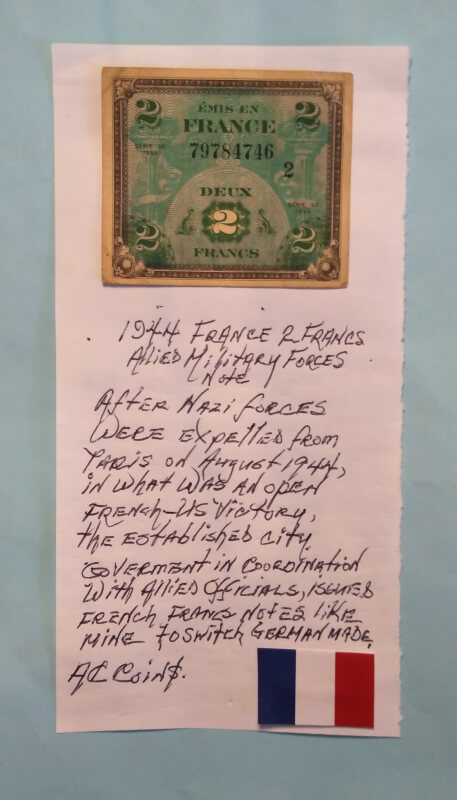 2 ÉMIS EN 2
FRANCE
SÉRIE DE
1944
79784746
2
DEUX
SÉRIE DE
1944
2 2 2
FRANCS
1944 FRANCE 2 FRANCS
Allied Military Forces
Note
After Nazi forces
WERE EXPElled from
PARIS on August 1944,
in what was an open
FRENCH-US Victory,
the Established city
GOVERMENT in COORDINATION
With Allied Officials, issued
FRENCH FRANCS NOTES like
MINE to switch GERMAN MADE.
AC Coin$.